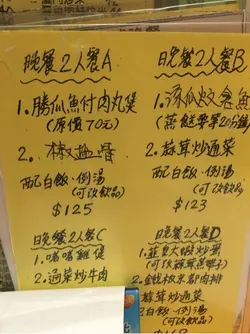 晚餐2人餐A
1.勝瓜魚付肉丸煲
(原價70元)
2.椒鹽骨
配白飯·例湯
(可改飲品)
$125
晚餐2人餐B
(蒸
2.蒜茸炒通菜
配白飯·例湯
(可改飲品)
$123
晚餐2人餐C
1.啫啫雞煲
2.通菜炒牛肉
晚餐2人餐D
1.韮黃大蝦炒蛋
2.金銀椒京都肉排
蒜茸炒通菜
白飯·例湯
(可改飲品)